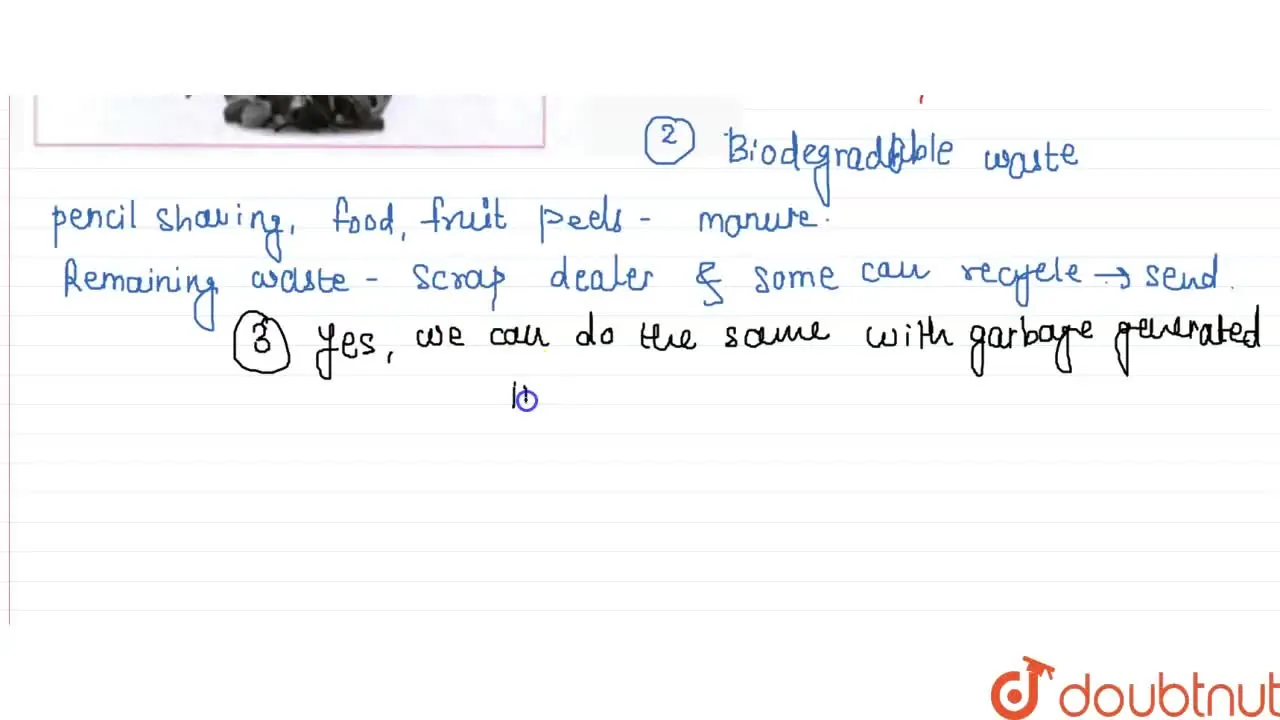 2 Biodegradable waste
pencil shaving, food, fruit peels - manure.
Remaining waste - scrap dealer & some can recycle → send.
3 Yes, we can do the same with garbage generated
in
doubtnut